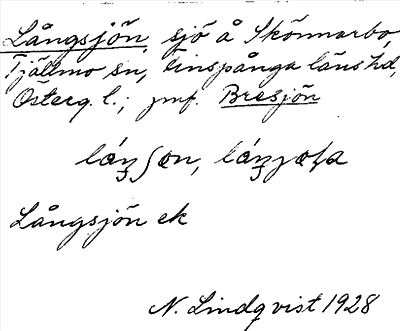 Långsjön, sjö å Skönnarbo,
Tjällmo sn, Finspånga läns hd,
Österg. l.; jmf. Bresjön
Långsjön ek
N. Lindqvist 1928